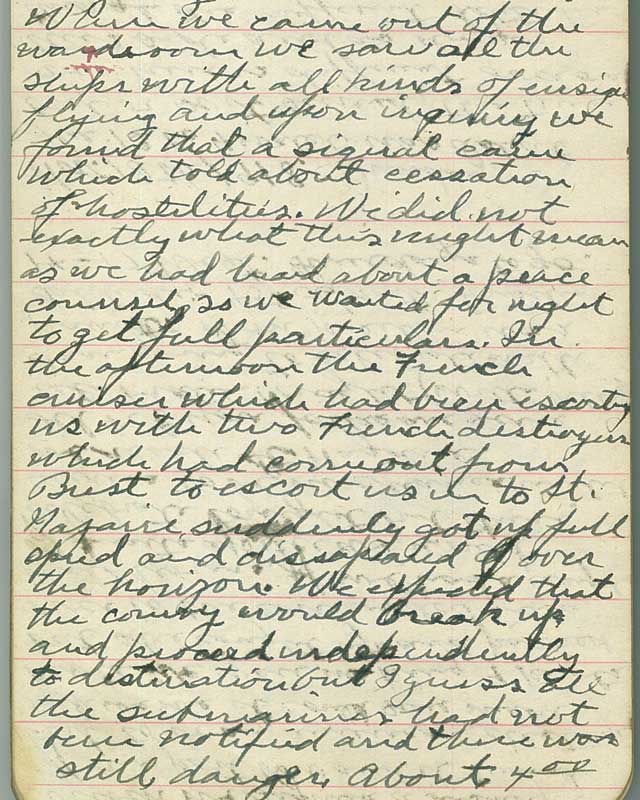 When we came out of the
wardroom we saw all the
ships with all kinds of ensigns
flying and upon inquiry we
found that a signal came
which told about cessation
of hostilities. We did not
exactly what this might mean
as we had heard about a peace
counsel so we waited for night
to get full particulars. In
the afternoon the French
cruiser which had been escorting
us with two French destroyers
which had come out from
Brest to escort us in to St.
Nazaire suddenly got up full
speed and dissapeared over
the horizon. We expected that
the convoy would break up
and proceed independently
to destination but I guess all
the submarines had not
been notified and there was
still danger. About 4 00